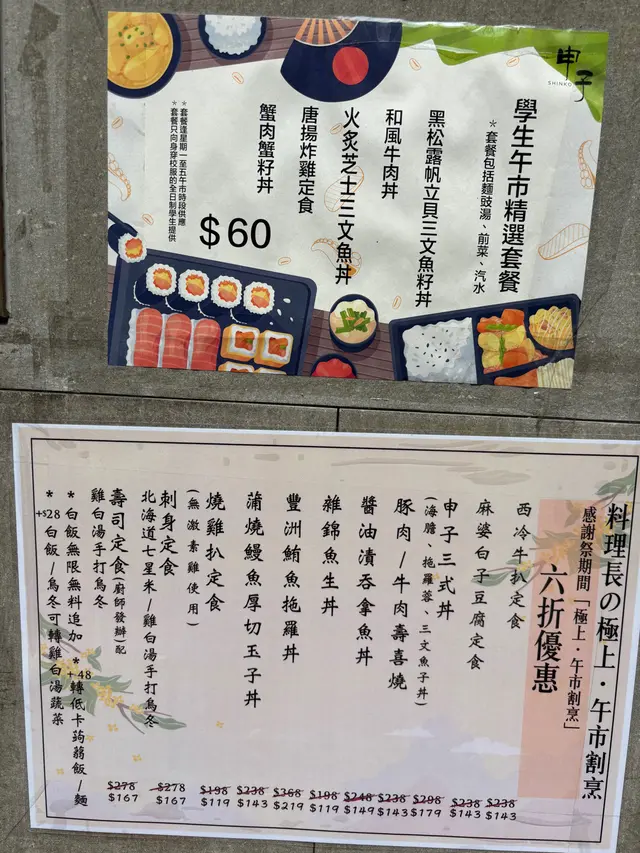 申子
SHINKO
學生午市精選套餐
＊套餐包括麵豉湯、前菜、汽水
黑松露帆立貝三文魚籽丼
和風牛肉丼
火炙芝士三文魚丼
唐揚炸雞定食
蟹肉蟹籽丼
$60
＊套餐逢星期一至五午市時段供應
＊套餐只向身穿校服的全日制學生提供
料理長の極上・午市割烹
感謝祭期間「極上・午市割烹」
六折優惠
西冷牛扒定食
$238
$143
麻婆白子豆腐定食
$238
$143
申子三式丼
(海膽、拖羅蓉、三文魚子丼)
$298
$179
豚肉/牛肉壽喜燒
$238
$143
醬油漬吞拿魚丼
$248
$149
雜錦魚生丼
$198
$119
豐洲鮪魚拖羅丼
$368
$219
蒲燒鰻魚厚切玉子丼
$238
$143
燒雞扒定食
(無激素雞使用)
$198
$119
刺身定食
北海道七星米/雞白湯手打烏冬
$278
$167
壽司定食(廚師發辦)配
雞白湯手打烏冬
$278
$167
*白飯無限無料追加 *+48轉低卡蒟蒻飯/麵
*+$28白飯/烏冬可轉雞白湯蔬菜